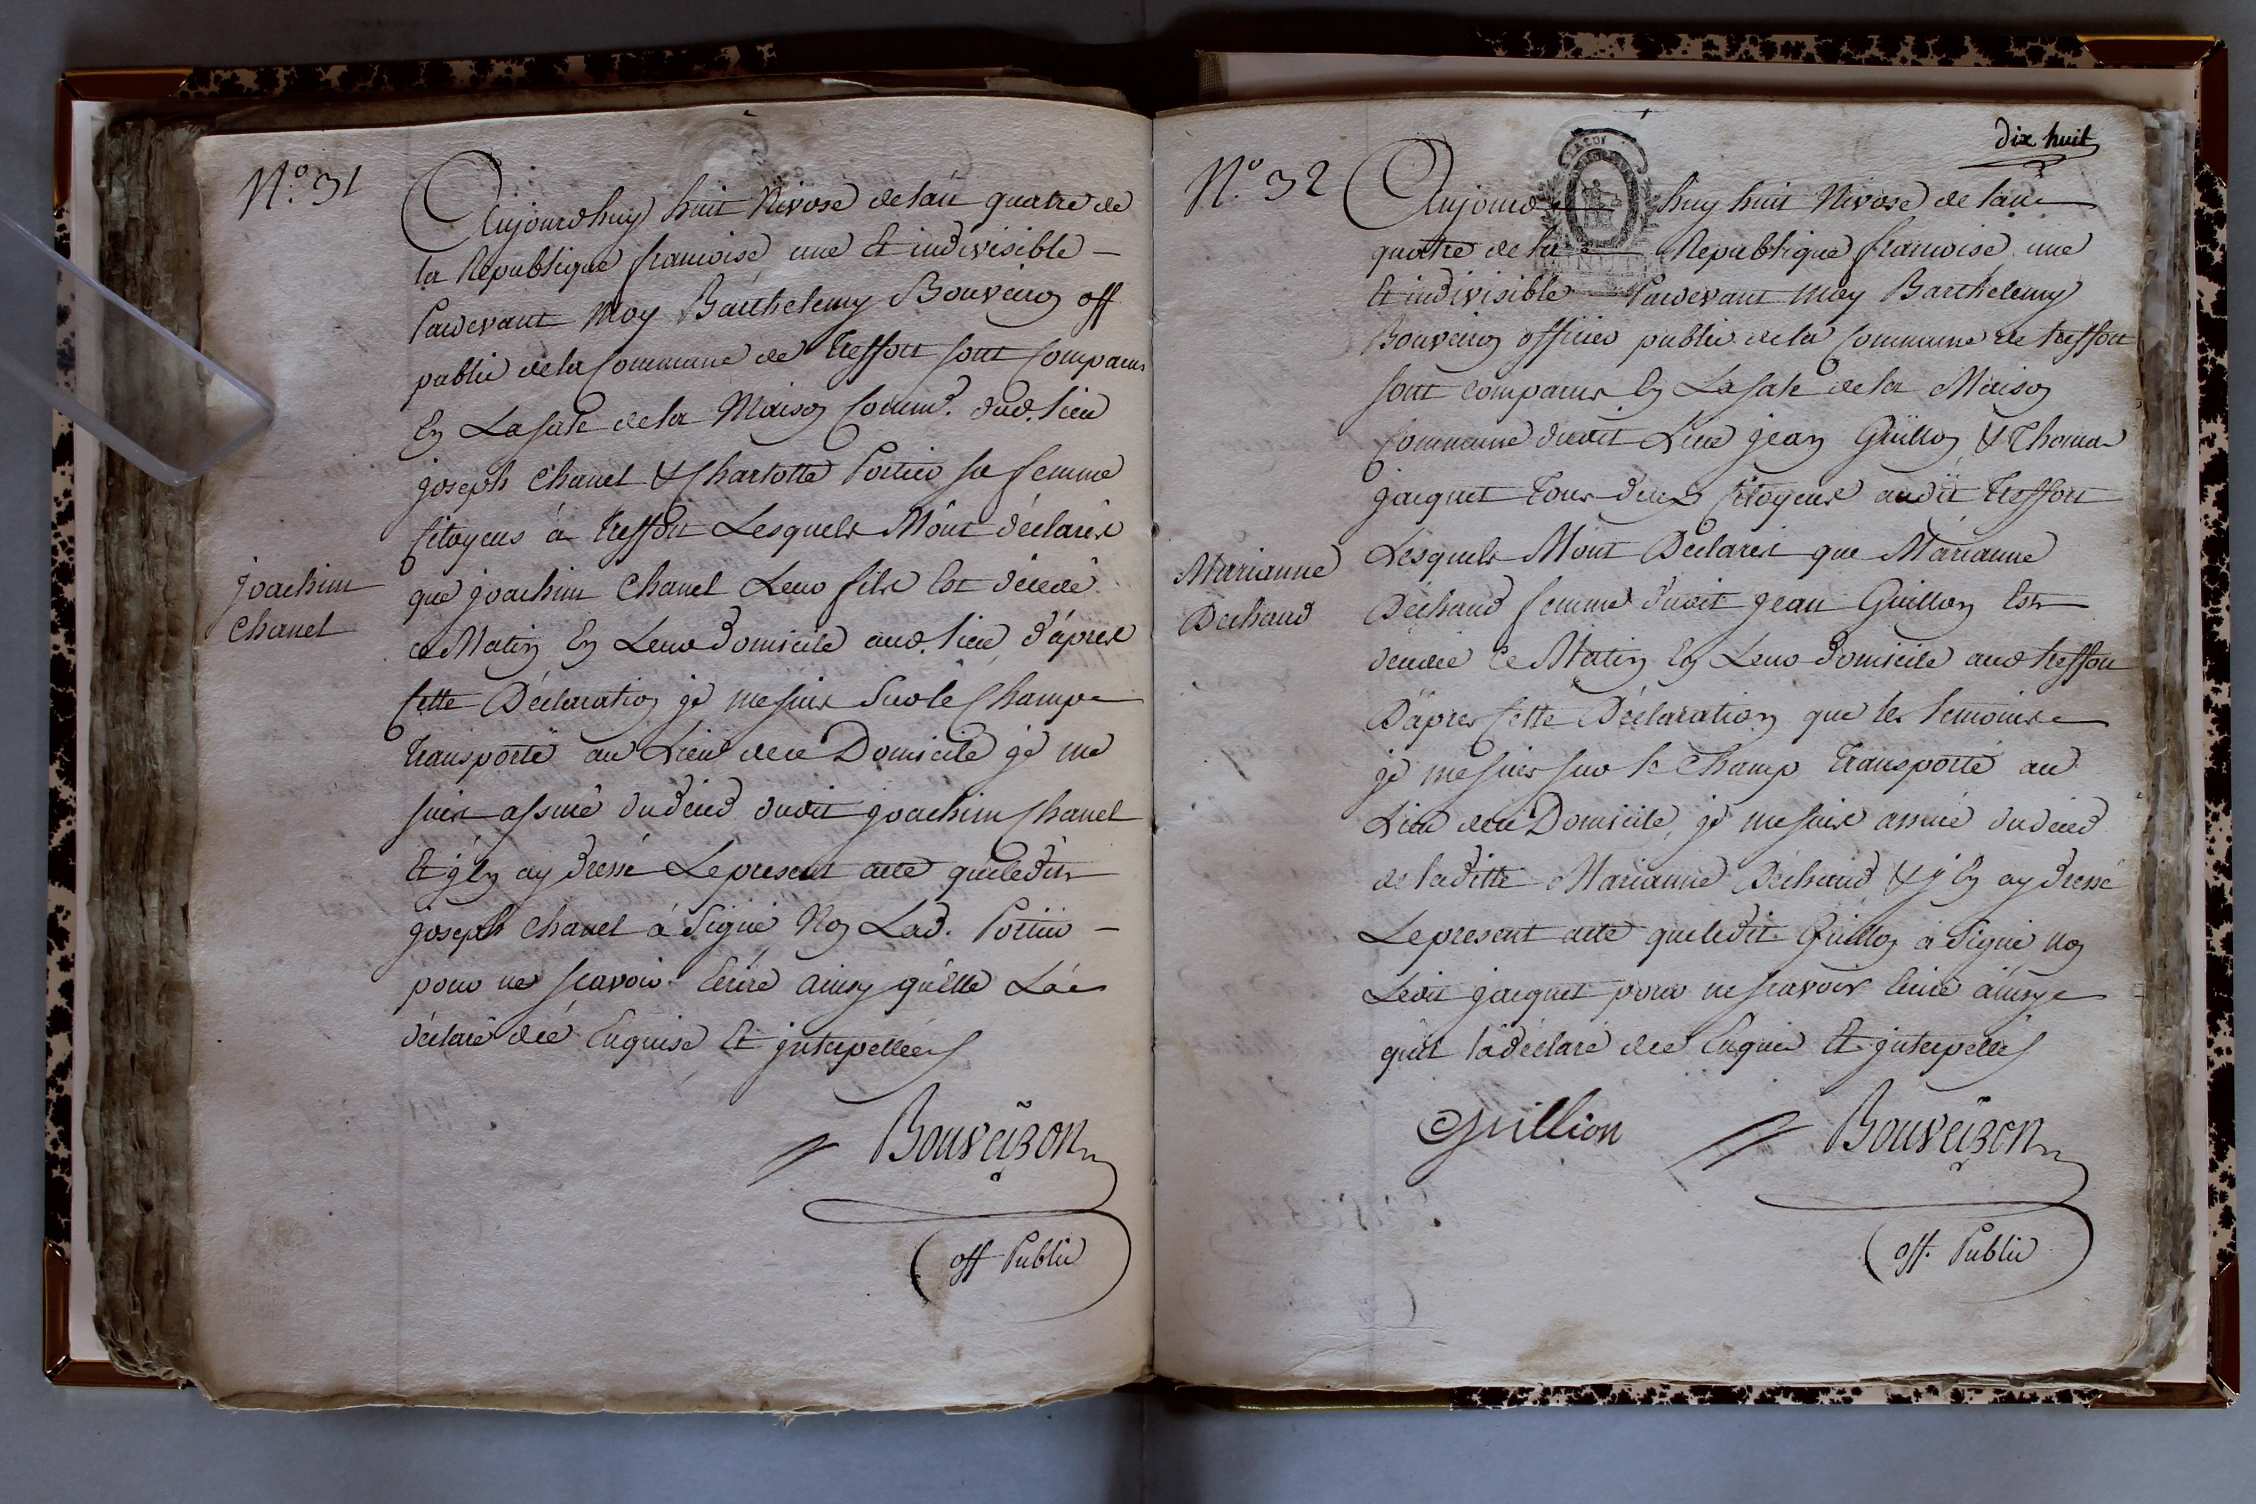 N.° 31
Aujourdhuy huit Nivose de lan quatre de
la Republique francoise une Et indivisible —
Pardevant Moy Barthelemy Bouveiron off
public de la Commune de treffort sont Comparus
En La sale de la Maison Commune. dud. lieu
joseph Chanel & Charlotte Portier sa femme
Citoyens à treffort Lesquels M'ont déclarés
joachim
Chanel
que joachim Chanel Leur fils Est décedé
ce Matin En Leur Domicile aud. lieu, d'après
Cette Déclaration je me suis sur le Champ
transporté au Lieu de ce Domicile je me
suis assuré du décéd dudit joachim Chanel
Et j'En ay dressé Le present acte que ledit
joseph Chanel à Signé Non Lad. Portier —
pour ne scavoir Ecrire ainsy qu'elle L'a
déclaré de ce Enquise Et interpellée
Bouveiron
off Public
dix huit
N.° 32
Aujourdhuy huit Nivose de lan
quatre de la Republique francoise une
Et indivisible Pardevant Moy Barthelemy
Bouveiron officier public de la Commune de treffort
sont comparus En La sale de la Maison
Commune dudit Lieu jean Guillon & Thomas
jacquet tous deux Citoyens audit treffort
Lesquels M'ont Déclarés que Marianne
Marianne
Dechaud
Déchaud femme dudit jean Guillon Est
décédée Ce Matin En Leur Domicile aud treffort
D'après Cette Déclaration que les temoins
je me suis sur le Champ transporté au
Lieu de ce Domicile, je me suis assuré du décéd
de laditte Marianne Déchaud & j'En ay dressé
Le present acte que ledit Guillon à Signé non
Ledit jacquet pour ne scavoir Ecrire ainsy
qu'il l'a déclaré de ce Enquis Et interpellé
Guillion
Bouveiron
off. Public